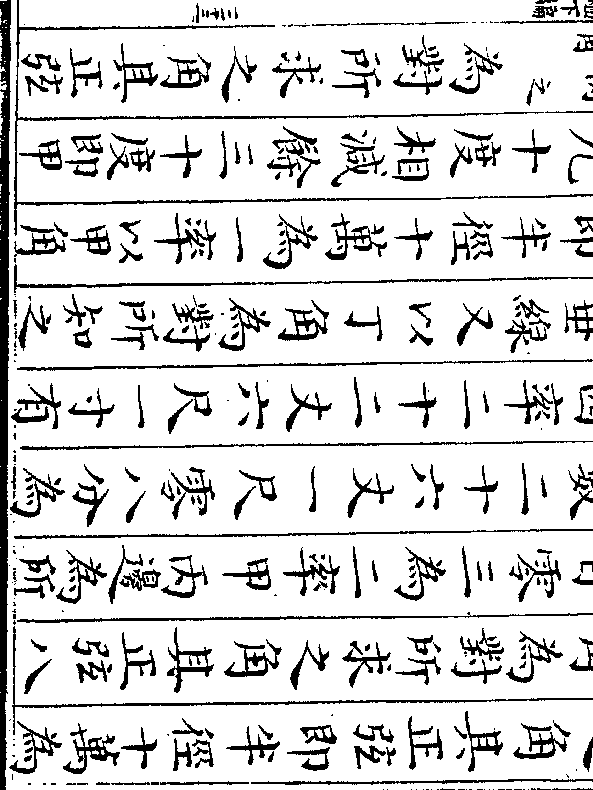 角其正弦即半徑十萬為
為對所求之角其正弦八
零三為二率甲丙邊為所
數二十六丈一尺零八分為
四率二十二丈六尺一寸有
垂線又以丁角為對所知之
即半徑十萬為一率以甲角
九十度相減餘三十度即甲
之為對所求之角其正弦
下編
三十三